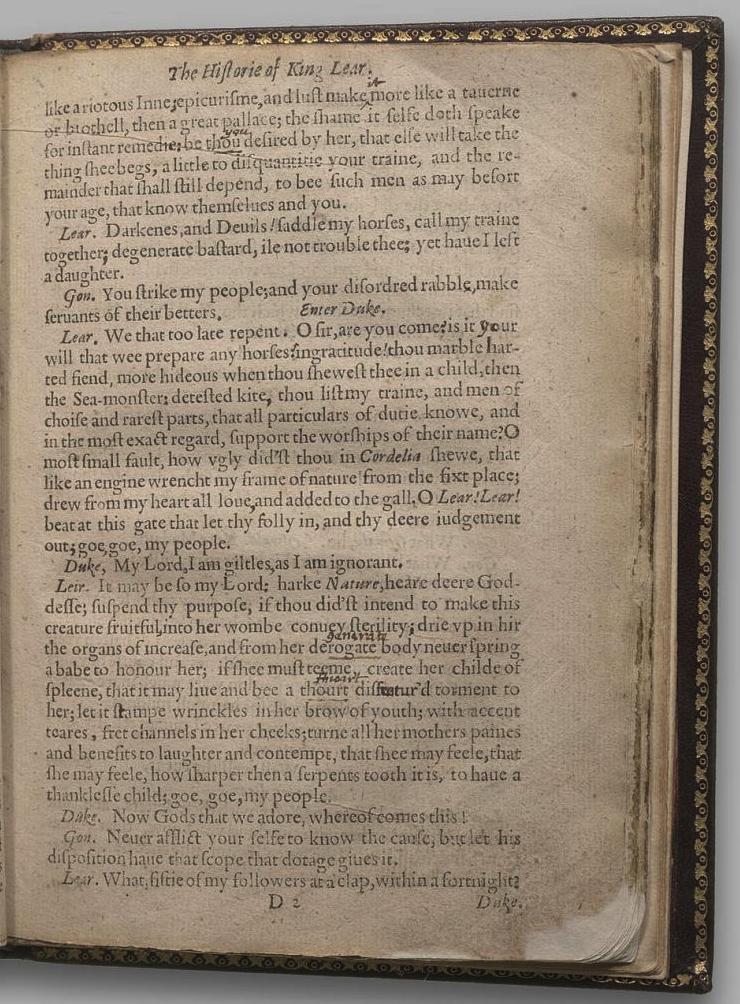 The Hiſtorie of King Lear.
it
like a riotous Inne, epicuriſme, and luſt make more like a tauerne
or brothell, then a great pallace; the ſhame it ſelfe doth ſpeake
you
for inſtant remedie; be thou deſired by her, that elſe will take the
thing ſhee begs, a little to diſquantitie your traine, and the re-
mainder that ſhall ſtill depend, to bee ſuch men as may beſort
your age, that know themſelues and you.
Lear. Darkenes, and Deuils! ſaddle my horſes, call my traine
together; degenerate baſtard, ile not trouble thee; yet haue I left
a daughter.
Gon. You ſtrike my people; and your diſordred rabble, make
ſeruants of their betters. Enter Duke.
Lear. We that too late repent. O ſir, are you come? is it your
will that wee prepare any horſes? ingratitude! thou marble har-
ted fiend, more hideous when thou ſheweſt thee in a child, then
the Sea-monſter: deteſted kite, thou liſt my traine, and men of
choiſe and rareſt parts, that all particulars of dutie knowe, and
in the moſt exact regard, ſupport the worſhips of their name? O
moſt ſmall fault, how vgly did'ſt thou in Cordelia ſhewe, that
like an engine wrencht my frame of nature from the fixt place;
drew from my heart all loue, and added to the gall. O Lear! Lear!
beat at this gate that let thy folly in, and thy deere iudgement
out; goe, goe, my people.
Duke, My Lord, I am giltles, as I am ignorant.
Leir. It may be ſo my Lord: harke Nature, heare deere God-
deſſe; ſuſpend thy purpoſe, if thou did'ſt intend to make this
creature fruitful, into her wombe conuey ſterility; drie vp in hir
the organs of increaſe, and from her derogate body neuer ſpring
a babe to honour her; if ſhee muſt teeme, create her childe of
ſpleene, that it may liue and bee a thourt diſnatur'd torment to
her; let it ſtampe wrinckles in her brow of youth; with accent
teares, fret channels in her cheeks; turne all her mothers paines
and benefits to laughter and contempt, that ſhee may feele, that
ſhe may feele, how ſharper then a ſerpents tooth it is, to haue a
thankleſſe child; goe, goe, my people.
Duke. Now Gods that we adore, whereof comes this!
Gon. Neuer afflict your ſelfe to know the cauſe, but let his
diſpoſition haue that ſcope that dotage giues it.
Lear. What, fiftie of my followers at a clap, within a fortnight?
D 2 Duke.